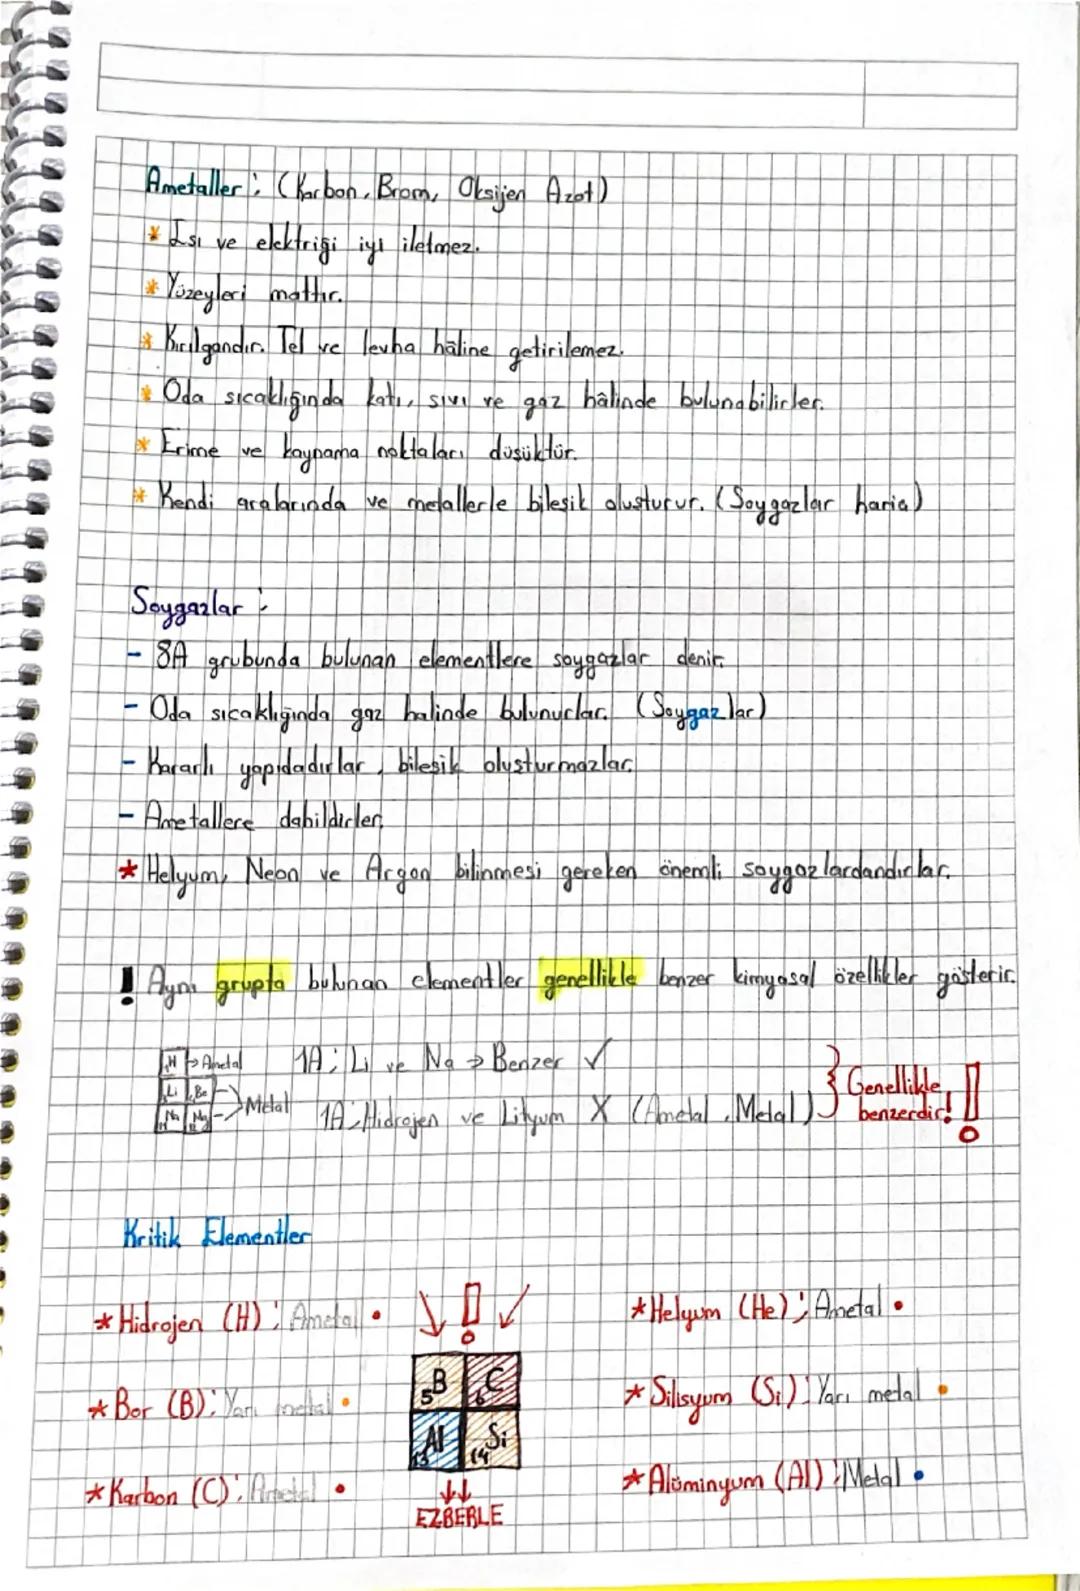 Ametaller : (Karbon, Brom, Oksijen Azot)
* Isı ve elektriği iyi iletmez.
* Yüzeyleri mattır.
* Kırılgandır. Tel ve levha hâline getirilemez.
* Oda sıcaklığında katı, sıvı ve gaz hâlinde bulunabilirler.
* Erime ve kaynama noktaları düşüktür.
* Kendi aralarında ve metallerle bileşik oluşturur. (Soygazlar hariç)
Soygazlar :
- 8A grubunda bulunan elementlere soygazlar denir.
- Oda sıcaklığında gaz halinde bulunurlar. (Soygazlar)
- Kararlı yapıdadırlar, bileşik oluşturmazlar.
- Ametallere dahildirler.
* Helyum, Neon ve Argon bilinmesi gereken önemli soygazlardandırlar.
! Aynı grupta bulunan elementler genellikle benzer kimyasal özellikler gösterir.
H → Ametal 1A; Li ve Na → Benzer ✓
Li Be
Na Mg → Metal 1A; Hidrojen ve Lityum X (Ametal, Metal)
11 12
} Genellikle benzerdir! !
Kritik Elementler
* Hidrojen (H) : Ametal •
↓ ! ✓
* Helyum (He) ; Ametal •
* Bor (B) : Yarı metal •
B 5 C 6
* Silisyum (Si) : Yarı metal •
Al 13 Si 14
* Karbon (C) : Ametal •
↓↓
EZBERLE
* Alüminyum (Al) : Metal •